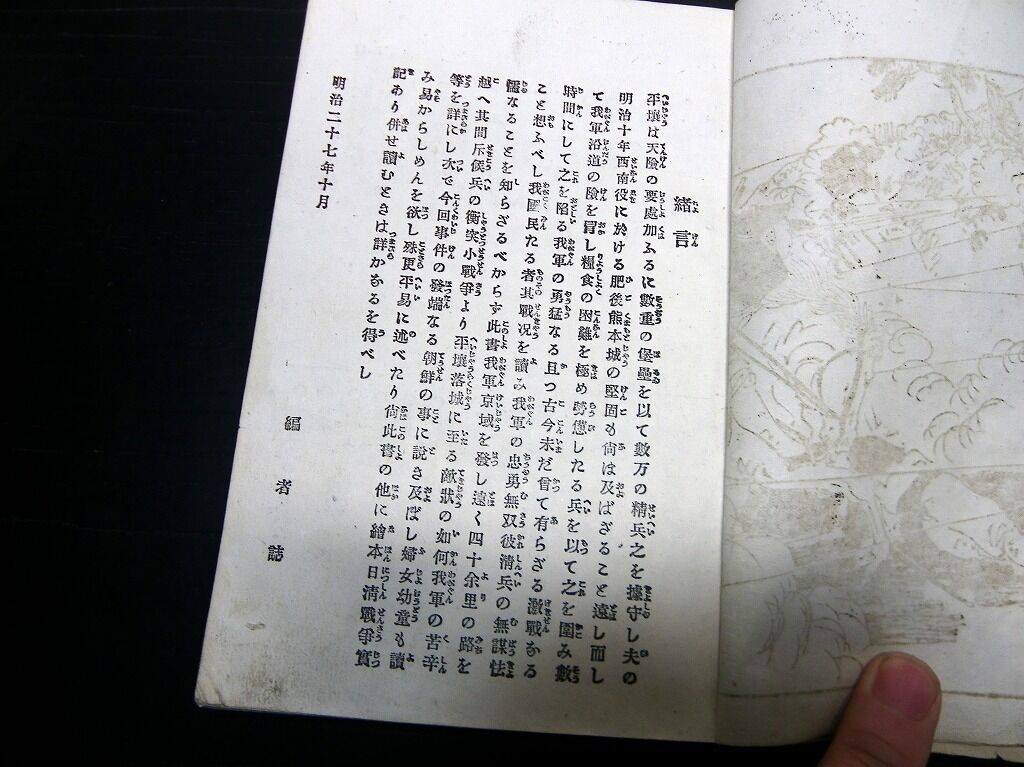 緒言
平壤は天險の要處加ふるに數重の堡壘を以て數万の精兵之を據守し夫の
明治十年西南役に於ける肥後熊本城の堅固も尙は及ばざること遠し而し
て我軍沿道の險を冐し糧食の困難を極め勞憊したる兵を以て之を圍み數
時間にして之を陷る我軍の勇猛なる且つ古今未だ曾て有らざる激戰なる
こと想ふべし我國民たる者其戰况を讀み我軍の忠勇無双彼淸兵の無謀怯
懦なることを知らざるべからず此書我軍京城を發し遠く四十余里の路を
越へ其間斥候兵の衝突小戰爭より平壤落城に至る敵狀の如何我軍の苦辛
等を詳にし次で今回事件の發端なる朝鮮の事に說き及ぼし婦女幼童も讀
み易からしめんを欲し殊更平易に述べたり尙此書の他に繪本日淸戰爭實
記あり併せ讀むときは詳かなるを得べし
明治二十七年十月
編者誌